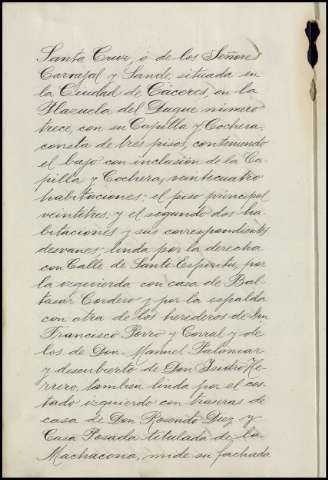 Santa Cruz, ó de los Señores
Carvajal y Sande, situada en
la Ciudad de Cáceres, en la
Plazuela del Duque número
trece, con su Capilla y Cochera,
consta de tres pisos, conteniendo
el bajo con inclusión de la Ca-
pilla y Cochera, veinticuatro
habitaciones; el piso principal
veintitres, y el segundo dos ha-
bitaciones y sus correspondientes
desvanes; linda por la derecha
con Calle de Santi-Espiritu, por
la izquierda con casa de Bal-
tasar Cordero y por la espalda
con otra de los herederos de Don
Francisco Porro y Corral y de
los de Don Manuel Palomar
y descubierto de Don Isidro He-
rrero, tambien linda por el cos-
tado izquierdo con traseras de
casa de Don Rosendo Diez y
Casa Posada titulada de la
Machacona, mide su fachada